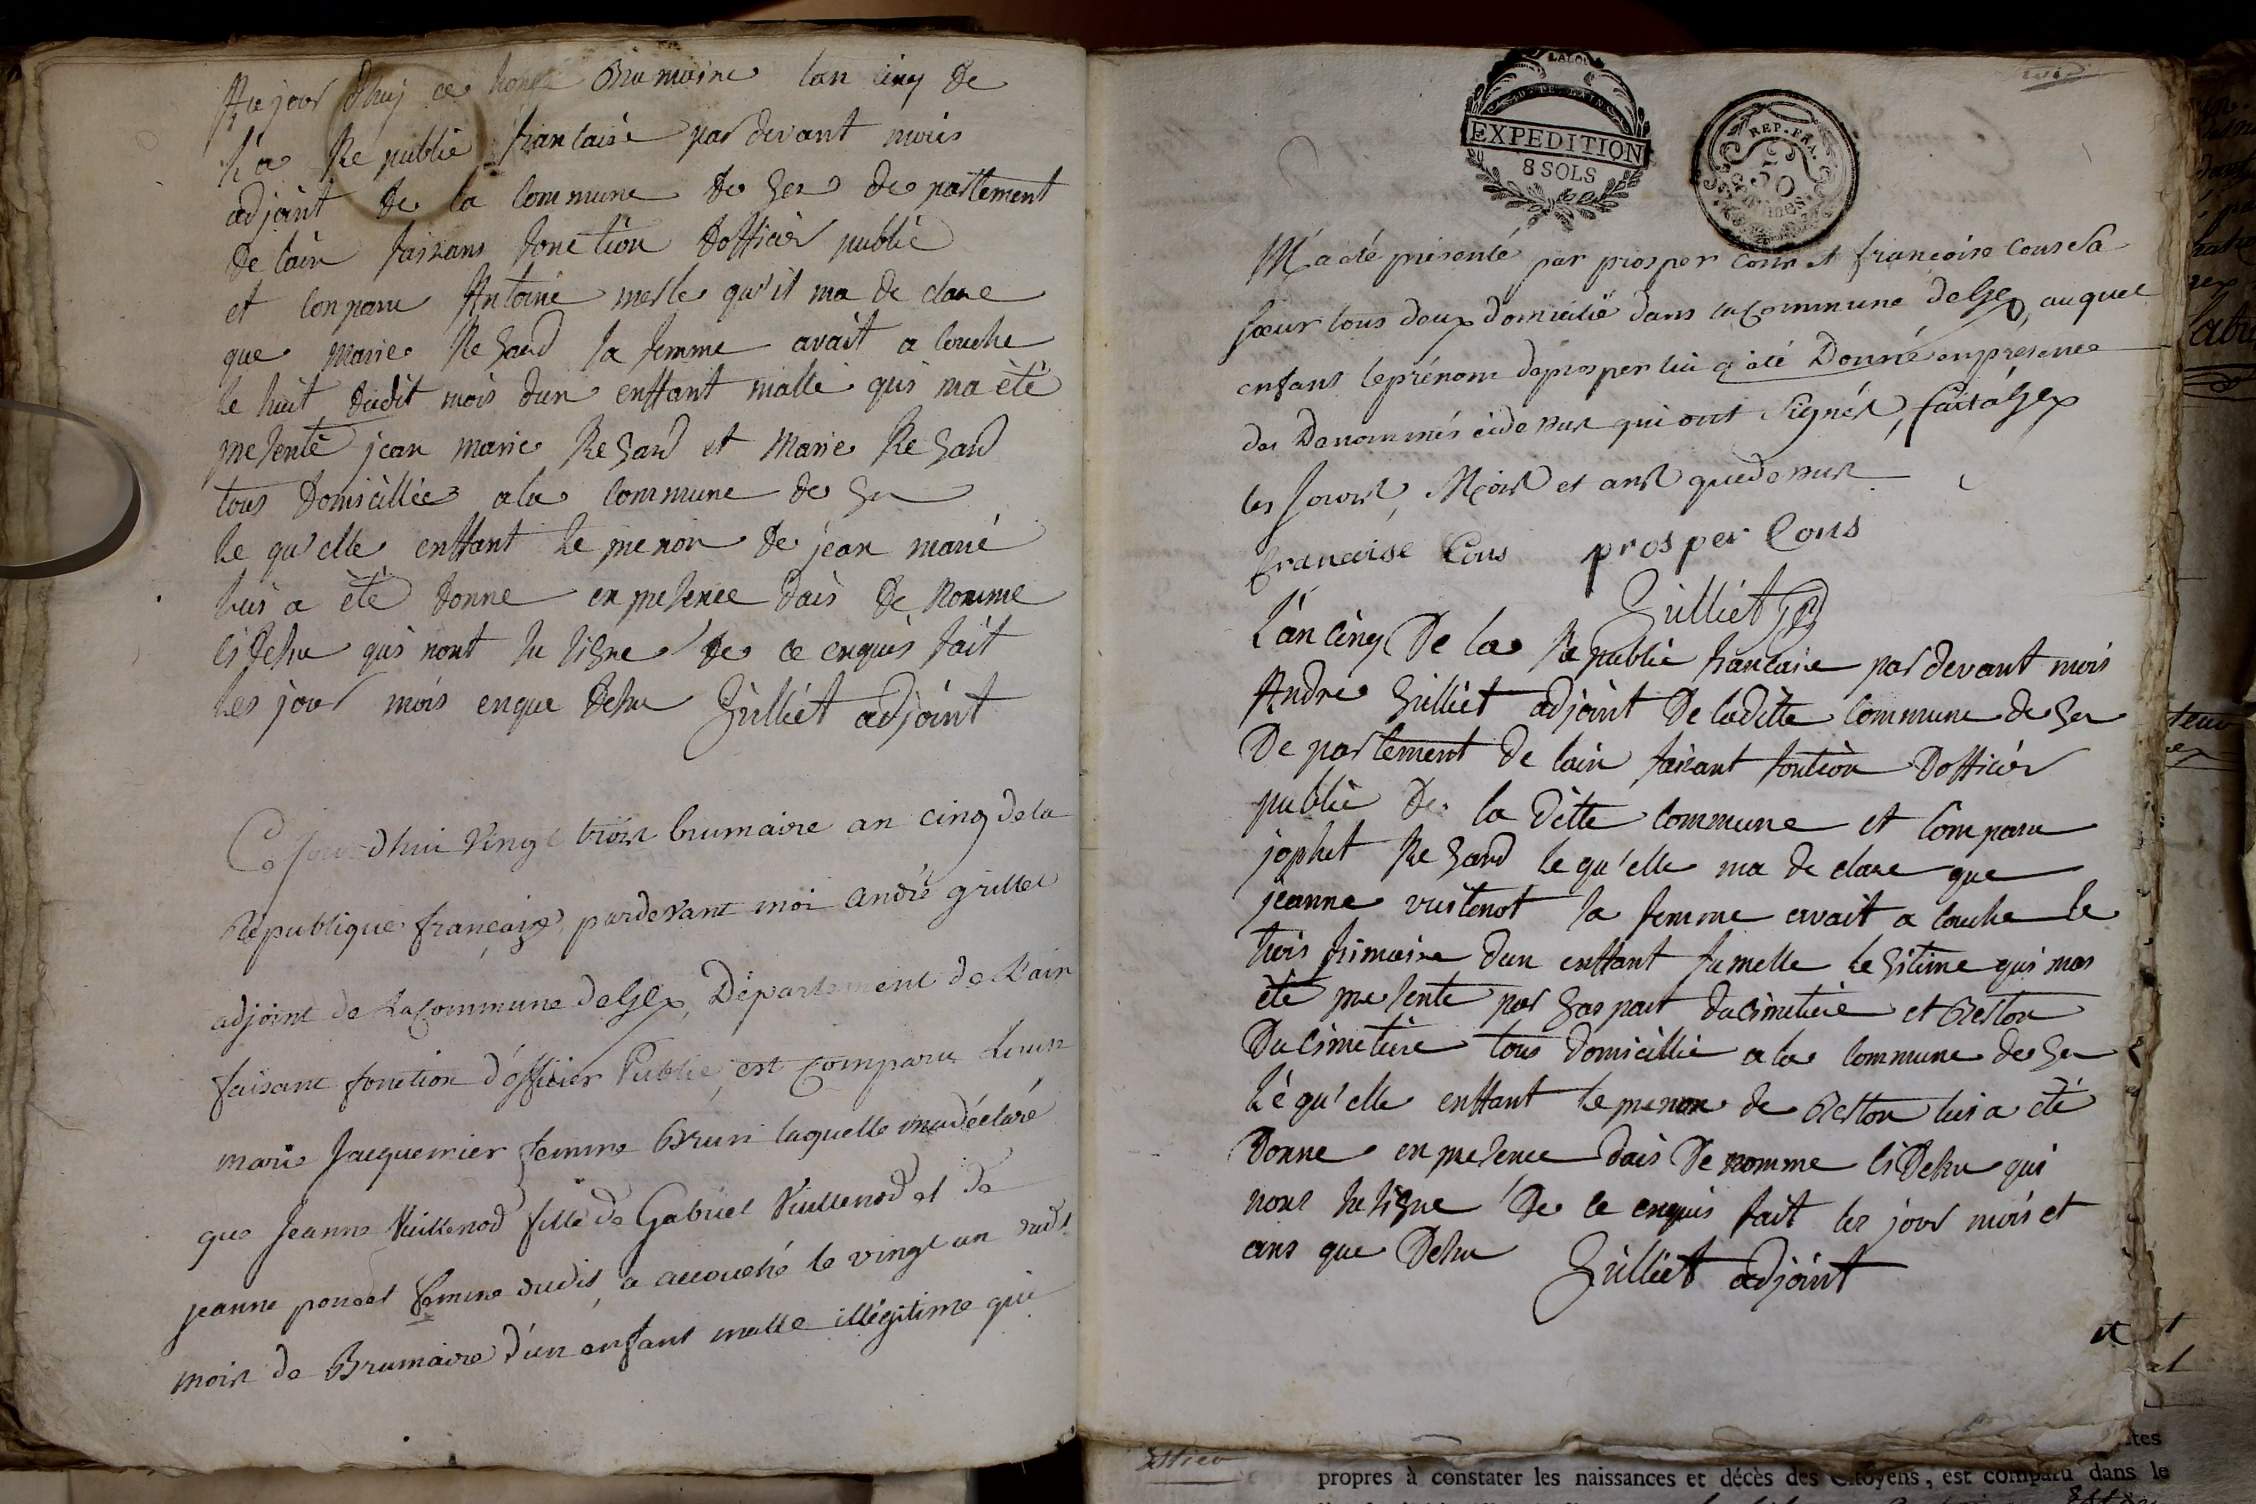 Au jour dhuj ce honze Brumaire lan cinq de
la Republie francaise par devant mois
adjoint de la commune de Gex de partement
de lain faisans fonction dofficier publie
et conparu Antoine mesle qu'il ma de clare
que Marie Regard sa femme avait a couche
le huit dudit mois dun enffant malle qui ma été
presenté jean marie Regard et Marie Regard
tous Domicilliée a la commune de Gex
le qu'elle enffant le prenon de jean marie
luis a été donne en presence dais de nomme
ci desu qui nont su signe de ce enquis fait
les jour mois enque desu Grilliet adjoint
Ce jourdhui Vingt trois brumaire an cinq de la
Republique française, pardevant moi andré grillet
adjoint de la Commune de Gex, Département de L'ain
faisant fonction d'officier Publie, est comparu Louise
marie Jacquemier femme Brun laquelle ma déclaré
que Jeanne Vuillenod fille de Gabriel Vuillenod et de
jeanne poncet femme dudit, a accouché le vingt un dudt
mois de Brumaire d'un enfant malle illégitime qui
EXPEDITION
8 SOLS
REP. FRA.
50
centimes
M'a été présenté par prosper cous et françoise cous sa
sœur tous deux domicilié dans la Commune de Gex, auquel
enfant le prénom de prosper lui a été Donné en presence
des Denommés cidessus qui ont Signés, fait à Gex
les Jours, Mois et ans que dessus
francoise Cous prosper Cous
Grilliet
L'an cinq De la Republie francaise par devant mois
Andre Grilliet adjoint De laditte commune de Gex
De partement de lain faisant fontion Dofficier
publie de la ditte commune et Comparu
josphet Regard le qu'elle ma de clare que
jeanne vuitenot sa femme avait a couche le
trois frimaire dun enffant fumelle legitime qui mas
été presente par Gaspart ducimetiere et Beston
Ducimetiere tous domicillie a la commune de Gex
le qu'elle enffant le prenon de Beston luis a été
Donne en presence dais De nomme ci Desu qui
nont su signe De ce enquis fait les jour mois et
ans que Desu Grilliet adjoint
et
propres à constater les naissances et décès des Citoyens, est comparu dans le